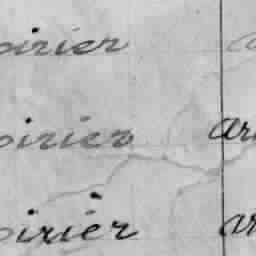 oirier
oirier ar
oirier ar